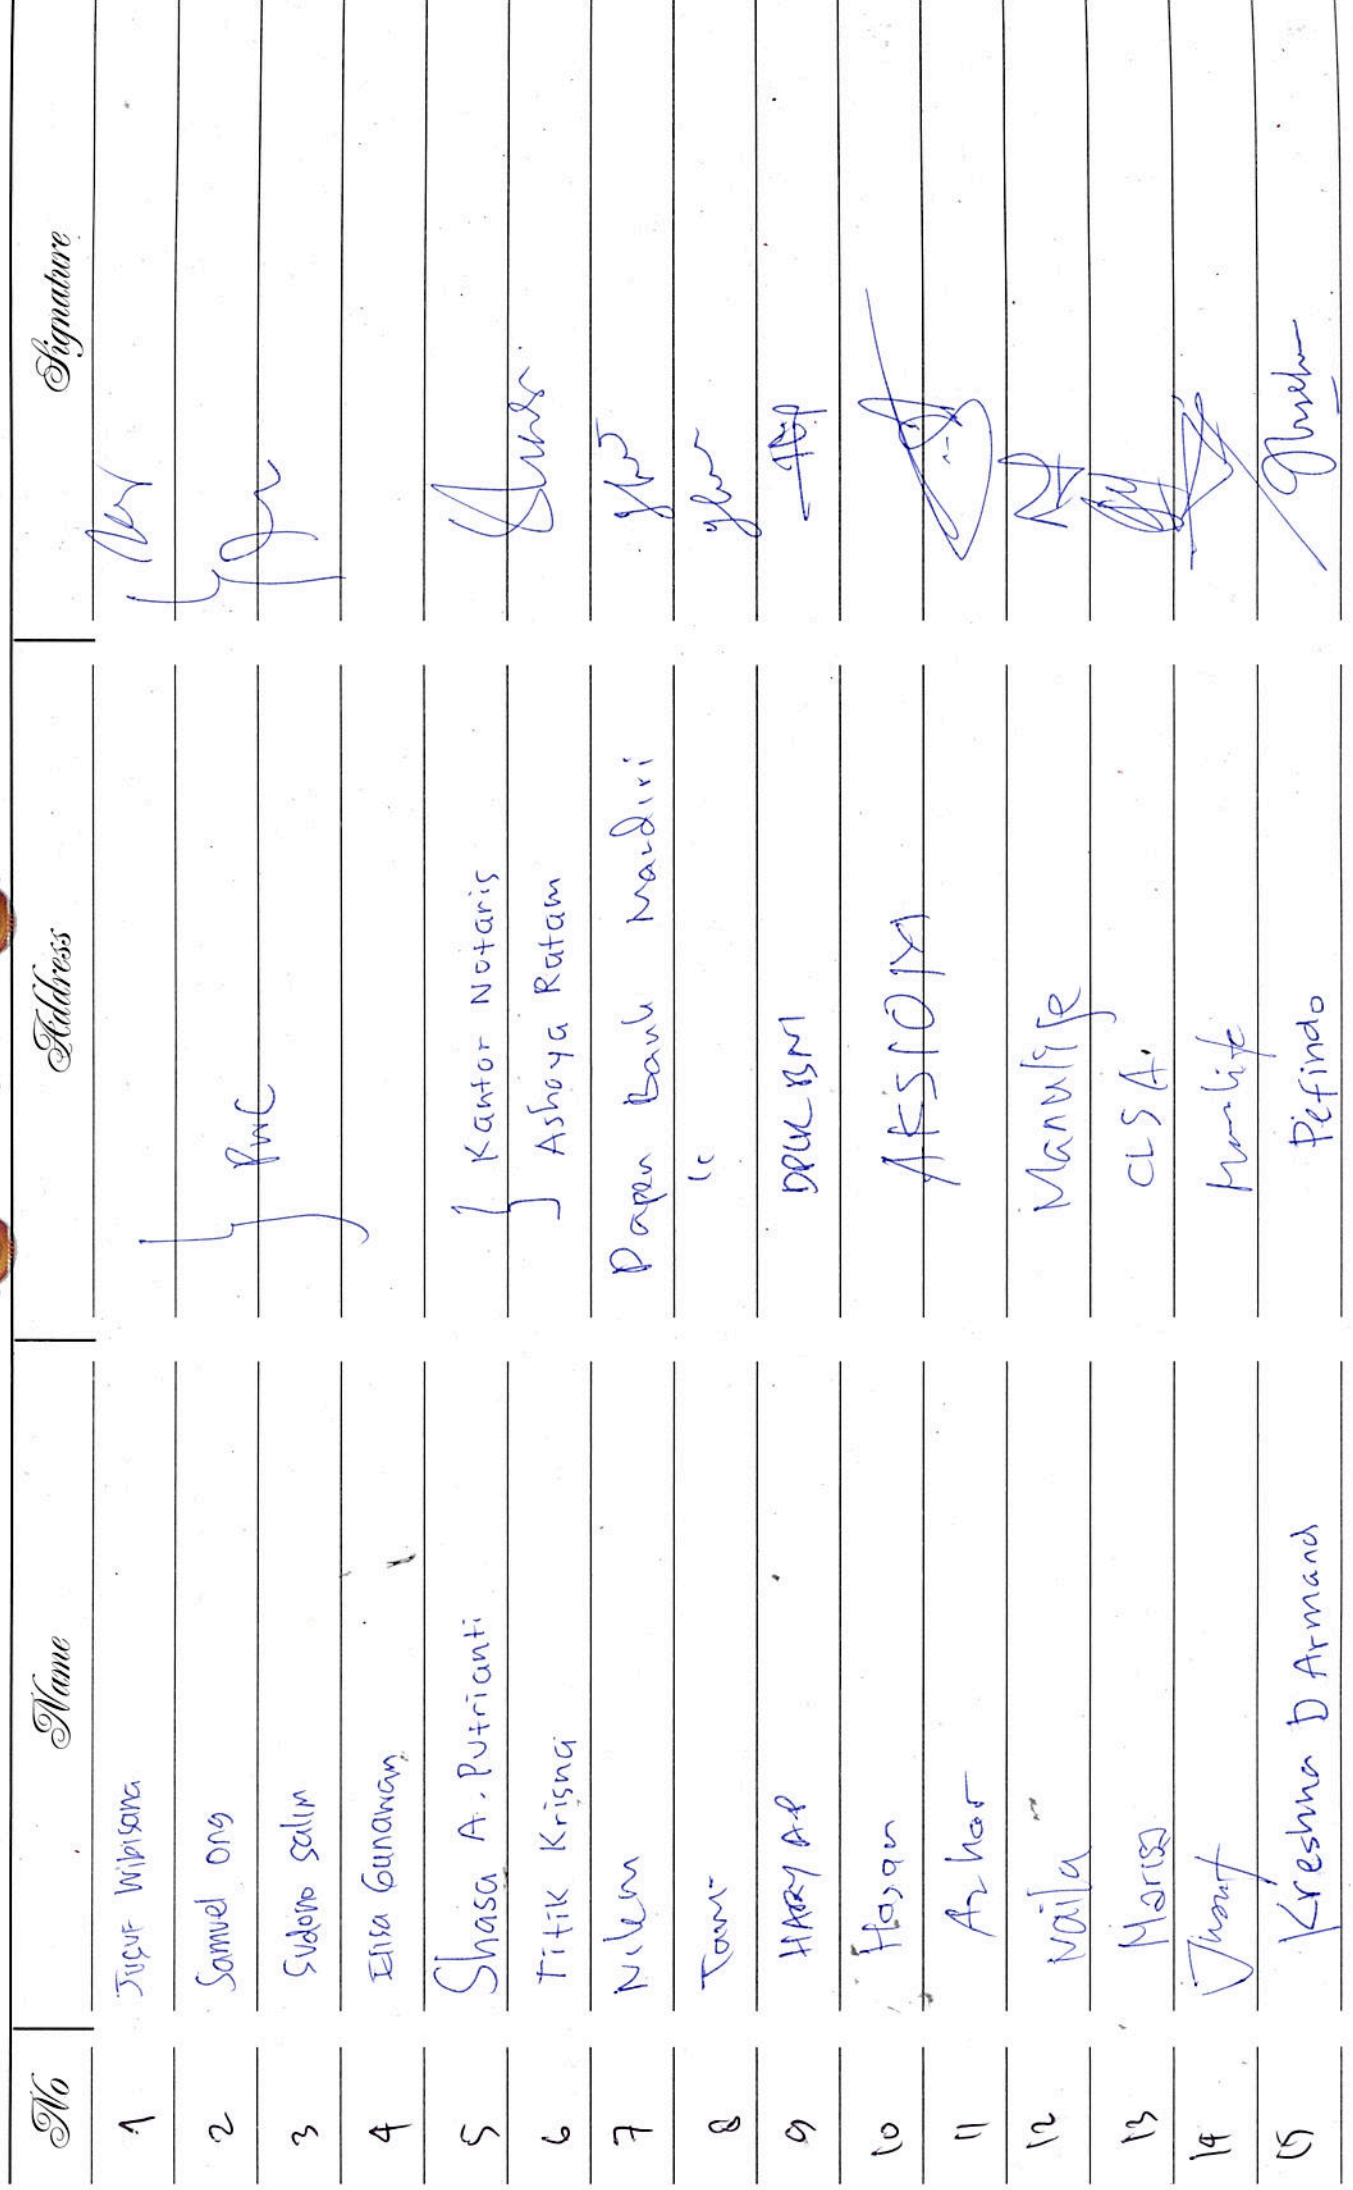 No Name Address Signature
1 Jusuf Wibisana
2 Samuel Ong PwC
3 Sudono Salim
4 Elisa Gunawan
5 Shasa A. Putrianti Kantor Notaris
6 Titik Krisna Ashoya Ratam
7 Dapen Bank Mandiri
8 "
9 HARRY AP DPLK BNI
10 Hasan AKSIOM
11 Azhar
12 Naila Manulife
13 Marisa CLSA.
14 Manulife
15 Kreshna D Armand Pefindo